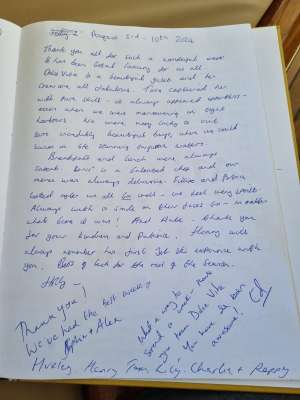 August 3rd - 10th 2024
Thank you all for such a wonderful week!
It has been
Dolce Vita is a beautiful yacht and her
crew are all fabulous. Tom captained her
with pure skill - always appeared
even when we were manoeuvring in
harbours. We were very lucky to visit
some incredibly beautiful bays, where we could
swim in the stunning turquoise waters.
Breakfasts and lunch were always
is a talented chef and our
menu was always delicious.
looked after us all so well - we feel very spoilt.
Always with a smile on their faces - no matter
what time it was! And Luke - thank you
for your kindness and patience. Henry will
always remember his first Jet Ski experience with
you! Best of luck for the rest of the season.
Thank you!
We've had the best week
+ Alex
What a way to
spend a week - made
by team Dolce Vita
You have all been
awesome!
Henry, Tom, Lily, Charlie + Poppy